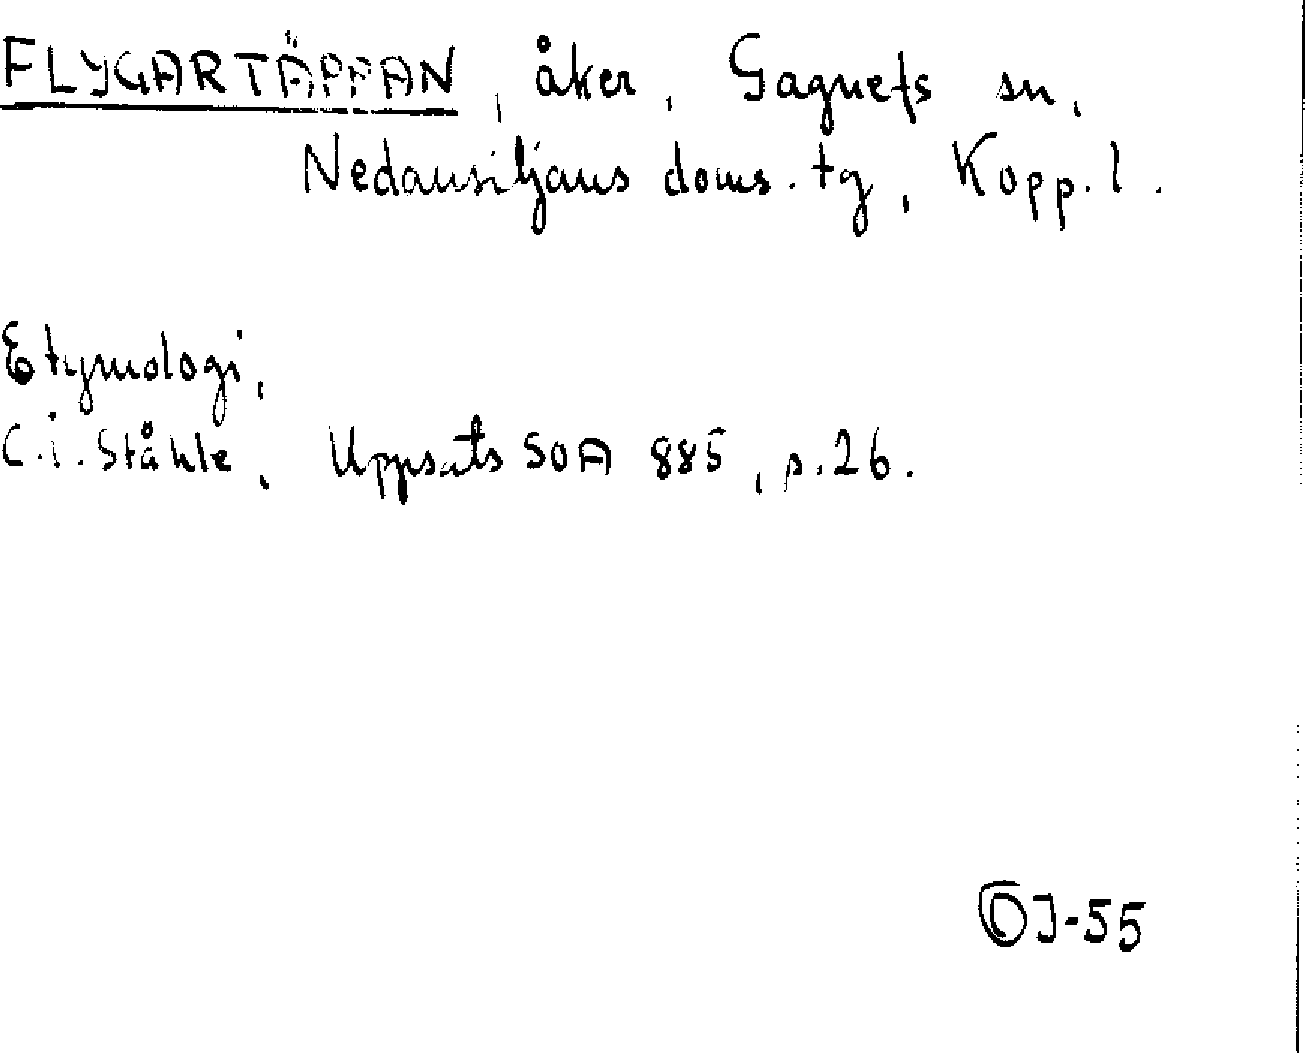 FLYGARTÄPPAN, åker, Gagnefs sn,
Nedansiljans doms. tg, Kopp. l.
Etymologi,
C. i. Ståhle, Uppsats SOA 885, s. 26.
OJ-55